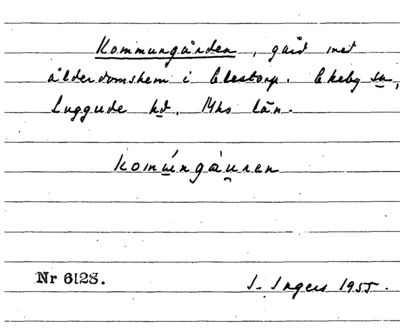 Kommungården, gård med
ålderdomshem i Elestorp. Ekeby sn,
Luggude hd. Mhs län.
komúngåuren
Nr 6128.
I. Ingers 1955.